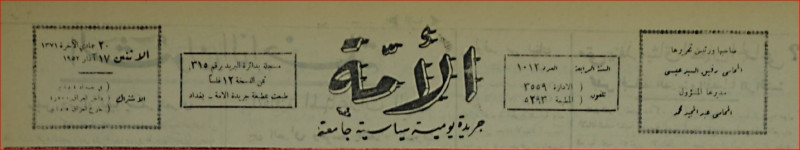 صاحبها ورئيس تحريرها
المحامي رفيق السيد عيسى
مديرها المسؤول
المحامي عبد المجيد محمد
السنة الرابعة العدد ١٠١٢
تلفون ( الادارة ٣٥٥٩
( المطبعة ٥٢٩٣
الأمة
جريدة يومية سياسية جامعة
مسجلة بدائرة البريد برقم ٣١٥
ثمن النسخة ١٢ فلساً
طبعت بمطبعة جريدة الامة - بغداد
٢٠ جمادي الآخرة ١٣٧١
الاثنين ١٧ آذار ١٩٥٢
الاشتراك
في بغداد
داخل العراق
خارج العراق